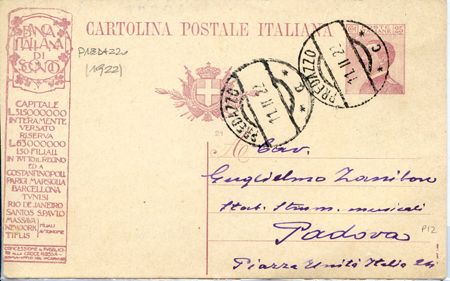 CARTOLINA POSTALE ITALIANA
BANCA
ITALIANA
DI
SCONTO
CAPITALE
L.315000000
INTERAMENTE
VERSATO
RISERVA
L.63000000
150 FILIALI
IN TUTTO IL REGNO
ED A
COSTANTINOPOLI
PARIGI MARSIGLIA
BARCELLONA
TUNISI
RIO DE JANEIRO
SANTOS S.PAULO
MASSAUA
NEW YORK
TIFLIS
FILIALI
AUTONOME
CONCESSIONE IL PUBBLICO
ALLA CROCE ROSSA
PREDAZZO
(1922)
PREDAZZO
11.II 22
C
PREDAZZO
11.II 22
C
25
21
A
Cav.
Guglielmo Zanibon
Stab. Strum. musicali
Padova
P12
Piazza Unità Italia 24